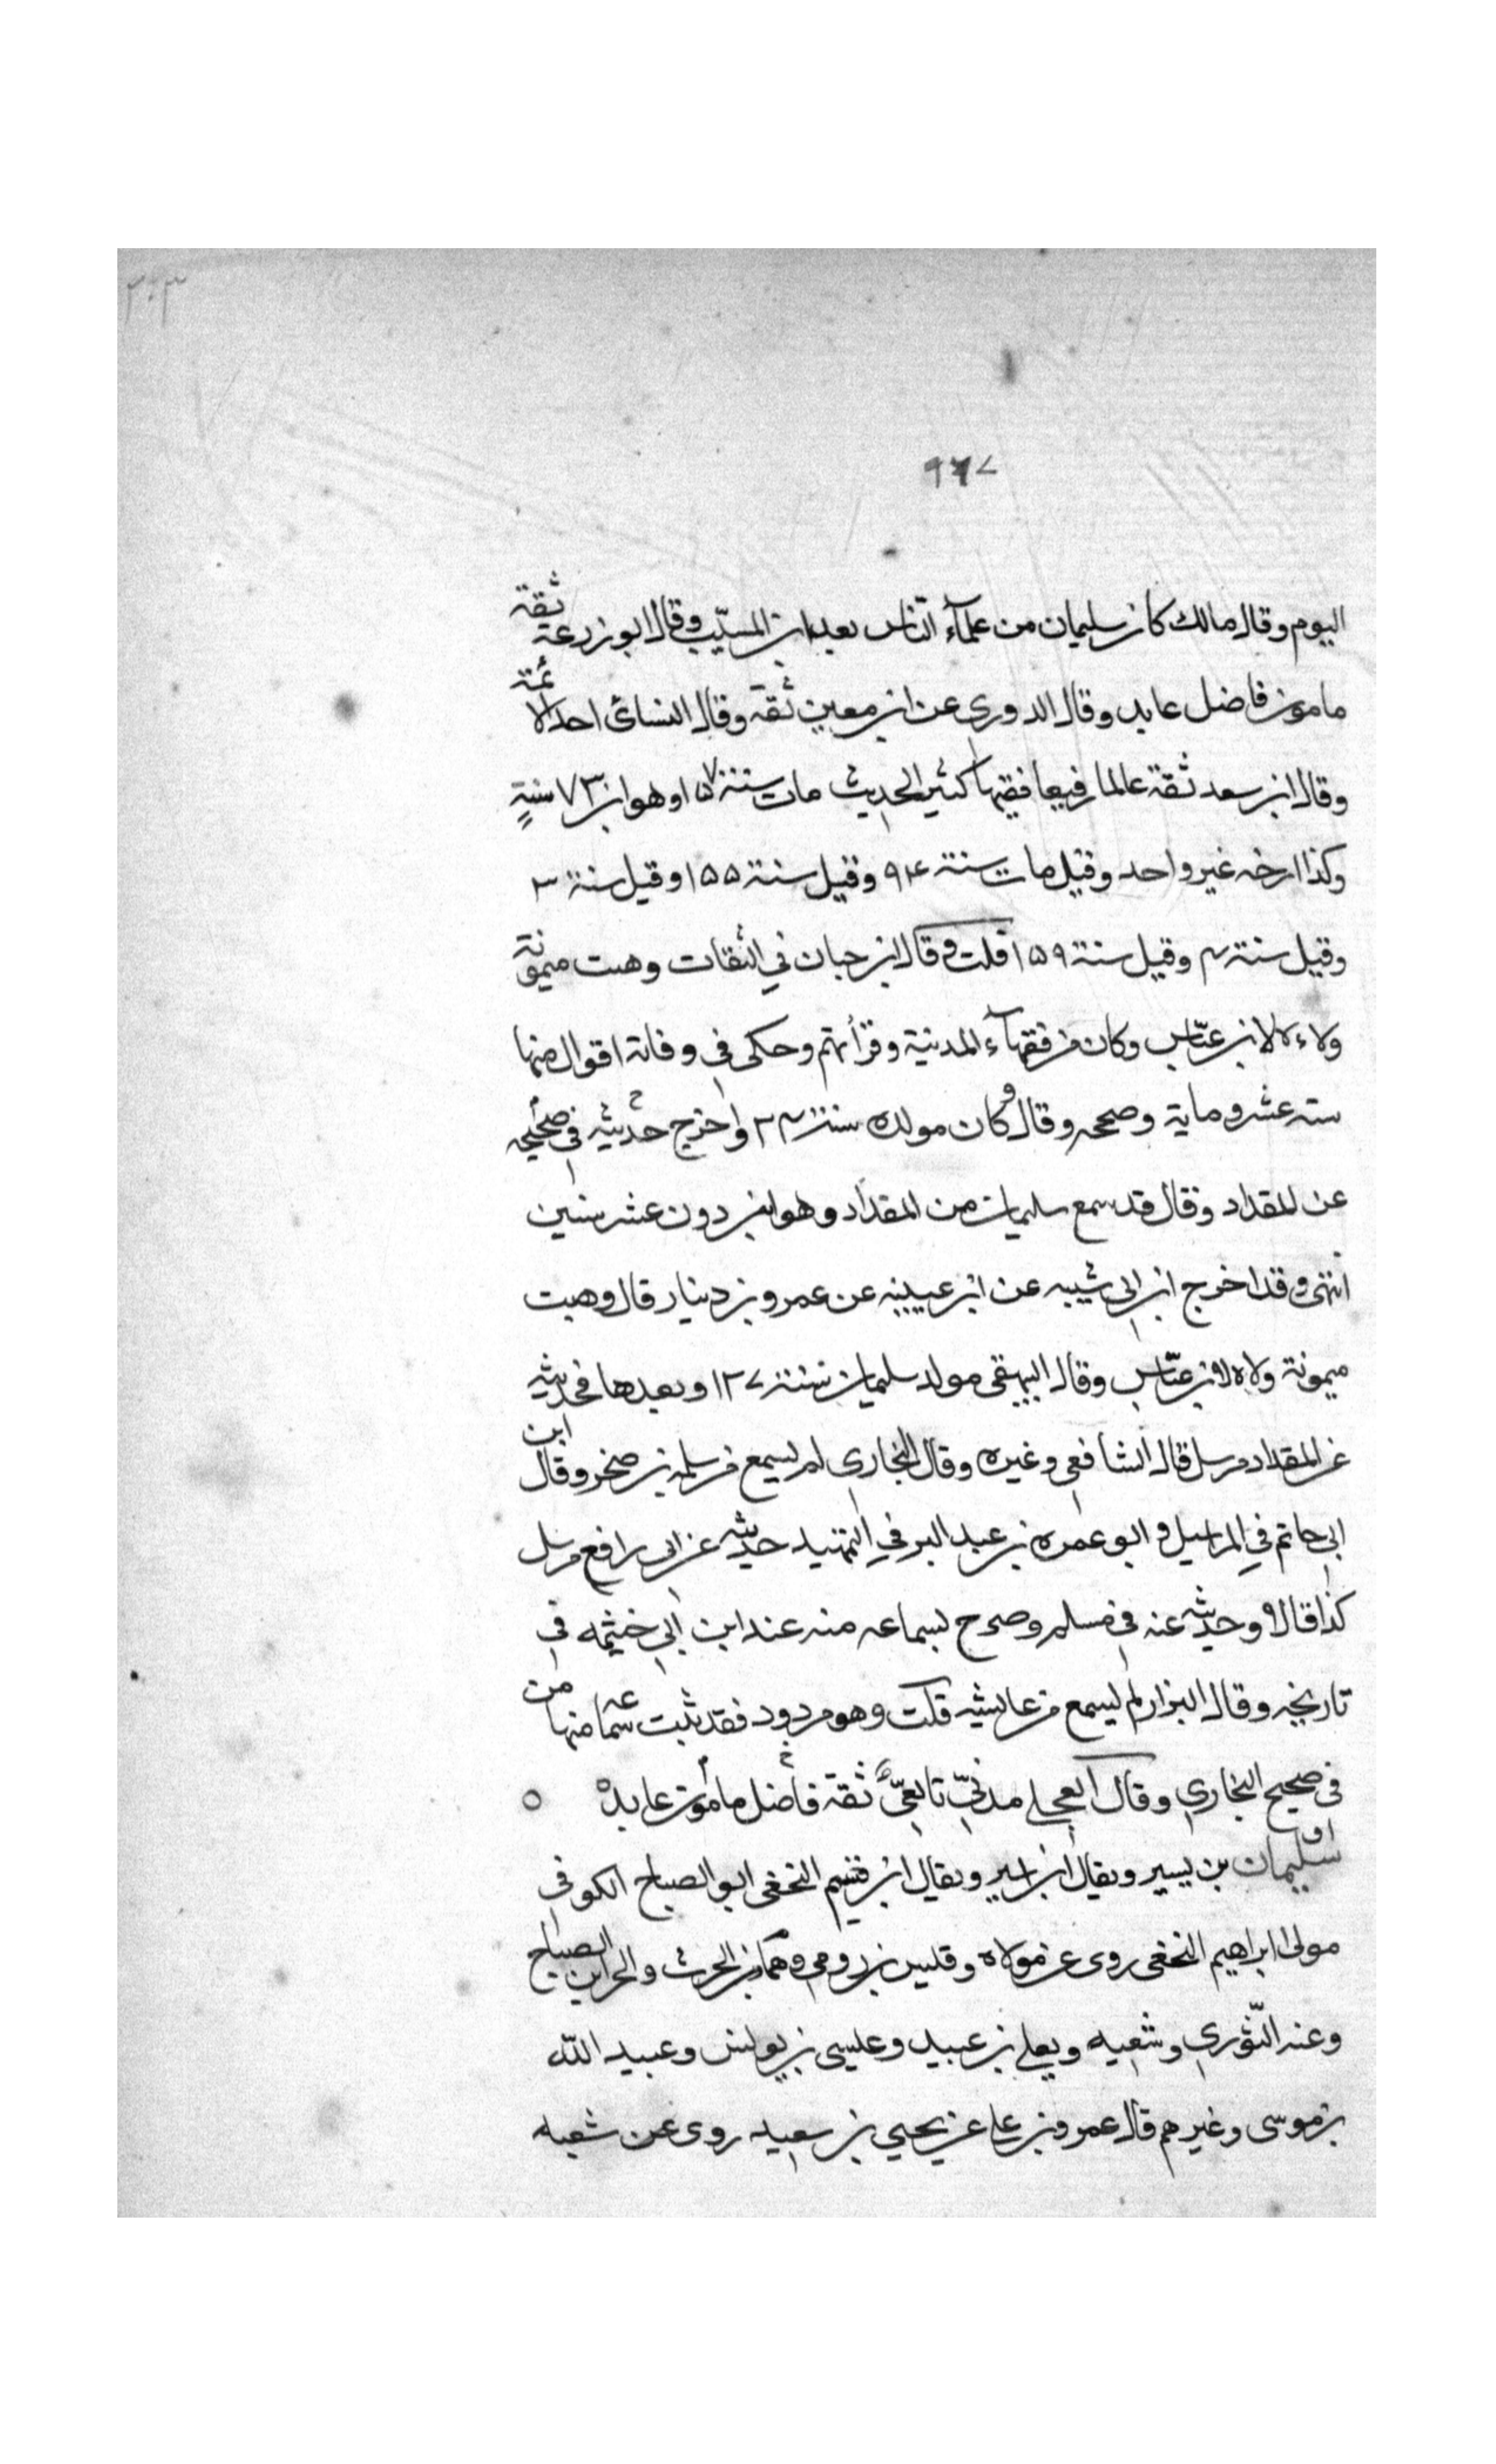 ٣٠٣
٩٦٧
اليوم وقال مالك كان سليمان من علمآء الناس بعد ابن المسيّب وقال ابو زرعة ثقة
مامون فاضل عابد وقال الدوري عن ابن معين ثقة وقال النسائى احد الائمة
وقال ابن سعد ثقة عالما رفيعا فقيها كثير الحديث مات سنة ١٥٧ وهو ابن ٧٣ سنة
وكذا ارخه غير واحد وقيل مات سنة ٩٤ وقيل سنة ١٥٥ وقيل سنة ٣
وقيل سنة ٤ وقيل سنة ١٥٩ قلت وقال ابن حبان في الثقات وهبت ميمونة
ولاءه لابن عبّاس وكان من فقهآء المدنية وقرأئهم وحكى في وفاته اقوال منها
سته عشر وماية وصححه وقال وكان مولده سنة ٢٤ واخرج حديثه في صحيحه
عن المقداد وقال قد سمع سليمان من المقداد وهو ابن دون عشر سنين
انتهى وقد اخرج ابن ابى شيبه عن ابن عيينه عن عمرو بن دينار قال وهبت
ميمونة ولاه لابن عبّاس وقال البيهقى مولد سليمان سنة ١٢٧ وبعدها فحديثه
عن المقداد مرسل قاله الشافعى وغيره وقال البخارى لم يسمع من سلمه بن صخر وقال ابن
ابى حاتم في المراسيل و ابو عمره بن عبد البر في التمهيد حديثه عن ابى رافع مرسل
كذا قالا وحديثه عنه في مسلم وصرح بسماعه منه عند ابن ابي خثيمه في
تاريخه وقال البزار لم يسمع من عايشه قلت وهو مردود فقد ثبت سماعه منها من
فى صحيح البخاري وقال العجلي مدنيّ تابعيّ ثقة فاضل مامون عابد ٥
سليمان بن يسير ويقال ابن اسير ويقال ابن قسيم النخعى ابو الصباح الكوفي
مولى ابراهيم النخعى روى عن مولاه وقليس بن رومى وهمام بن الحرث والحر ابن الصباح
وعنه الثّوري وشعبه ويعلى بن عبيد وعليسى بن يونس وعبيد الله
بن موسى وغيرهم قال عمرو بن على عن يحيي بن سعيد روى عن شعبه